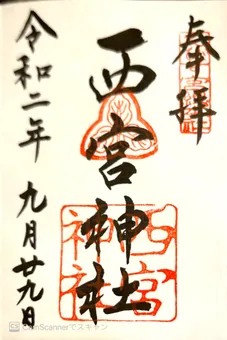 奉拝
西宮神社
西宮
神社
令和二年 九月廿九日
CS CamScannerでスキャン